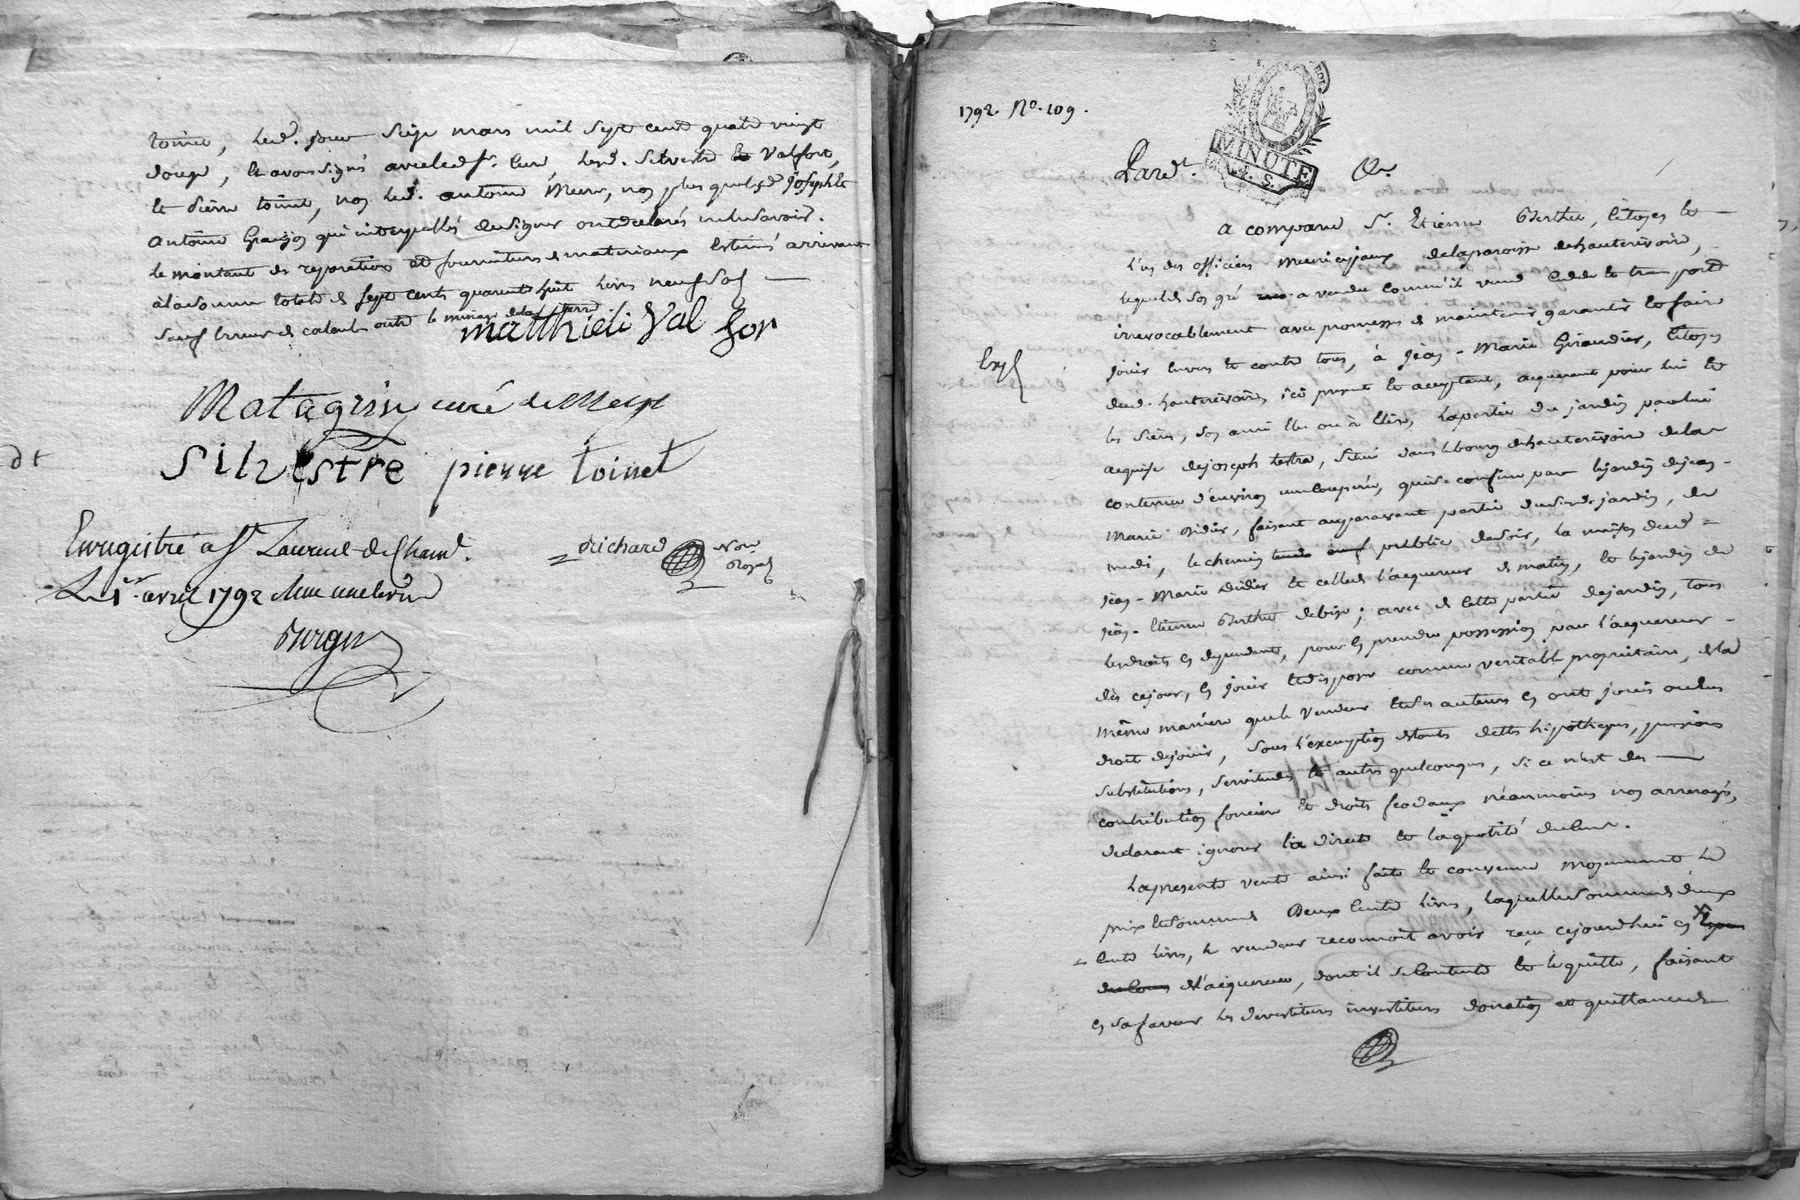 toinet, led. jour seize mars mil sept cent quatre vingt
douze, et avons signé avec led. sr. curé, lesd. silvestre et valfort,
et pierre toinet, non led. antoine non plus que lesd. joseph et
antoine qui interpellés de signer ont déclarés ne le savoir.
le montant des reparations et fournitures de materiaux estimés arrivant
à la somme totale de sept cents quarante huit livres neuf sols
sauf erreur de calcul outre le
matthieu Val for
Matagrin curé de Meys
Silvestre pierre toinet
dt
Enregistré a St. Laurent de Cham.
Le 1er. avril 1792
richard Nore Royal
1792 No. 109.
Pard.t
MINUTE
. S.
a comparu Sr. Etienne Berthet, citoyen et
l'un des officiers municipaux de la paroisse de hauterivoire,
lequel de son gré a vendu comme il vend cede et transporte
irrevocablement avec promesse de maintenir garantir et faire
jouir envers et contre tous, à Jean-Marie Giraudier, citoyen
Exp
dud. hauterivoire ici present et acceptant, acquerant pour lui et
les siens, son ami élu ou à élire, la partie du jardin par lui
acquise de joseph , situé dans le bourg de hauterivoire de la
contenue d'environ une couperée, qui se confine par le jardin de jean-
Marie Didier, faisant auparavant partie du susd. jardin, de
midi, le chemin publlic de soir, la maison dud.
jean-Marie Didier et celle de l'acquereur de matin, et le jardin de
jean-Etienne Berthet de bise; avec de cette partie de jardin, tous
les droits en dependants, pour en prendre possession par l'acquereur
dès ce jour, en jouir et disposer comme veritable proprietaire, de la
même maniere que le vendeur et ses auteurs en ont joui ou du
droit de jouir, sous l'exemption de toute dette hipotheques, pensions
substitutions, servitudes et autres quelconques, si ce n'est des
contribution fonciere et droits feodaux néanmoins non arreragés,
declarant ignorer la directe et la quotité d'iceux.
La presente vente ainsi faite et convenue moyennant le
prix et somme de Deux cents livres, laquelle somme de deux
cents livres, le vendeur reconnoit avoir reçu cejourdhui en
de l'acquereur, dont il se contente et le quitte, faisant
en sa faveur les devestitures investitures donation et quittance de